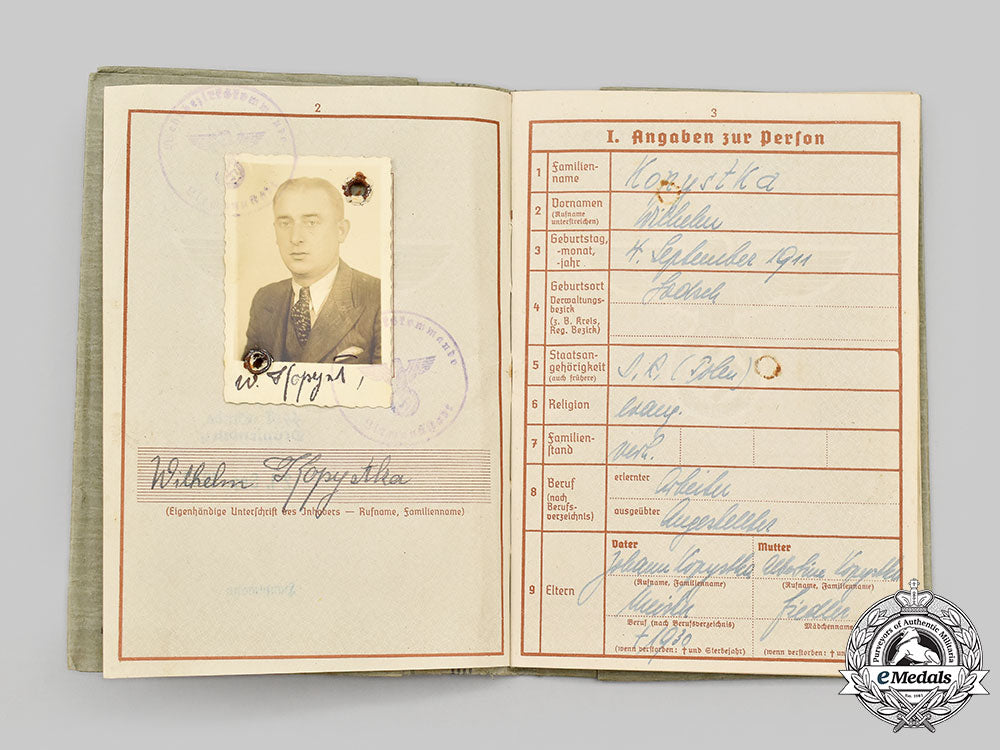 2
W. Kopyst
Wilhelm Kopystka
(Eigenhändige Unterschrift des Inhabers — Rufname, Familienname)
3
I. Angaben zur Person
1 Familien-
name
Kopystka
2 Vornamen
(Rufname
unterstreichen)
Wilhelm
3 Geburtstag,
-monat,
-jahr
4. September 1911
4 Geburtsort
Verwaltungs-
bezirk
(z. B. Kreis,
Reg. Bezirk)
Lodsch
5 Staatsan-
gehörigkeit
(auch frühere)
D. R. (Polen)
6 Religion
evang.
7 Familien-
stand
verh.
8 Beruf
(nach
Berufs-
verzeichnis)
erlernter
Arbeiter
ausgeübter
Angestellter
9 Eltern
Vater Mutter
Johann Kopystka Kopystka
(Rufname, Familienname) (Rufname, Familienname)
Meister Fiedler
Beruf (nach Berufsverzeichnis) Mädchenname
† 1930
(wenn verstorben: † und Sterbejahr) (wenn verstorben: † und
Purveyors of Authentic Militaria
eMedals